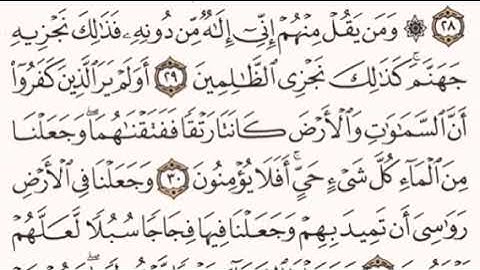 ٢٨ ۞ وَمَن يَقُلْ مِنْهُمْ إِنِّىٓ إِلَٰهٌ مِّن دُونِهِۦ فَذَٰلِكَ نَجْزِيهِ
جَهَنَّمَ ۚ كَذَٰلِكَ نَجْزِى ٱلظَّٰلِمِينَ ٢٩ أَوَلَمْ يَرَ ٱلَّذِينَ كَفَرُوٓا۟
أَنَّ ٱلسَّمَٰوَٰتِ وَٱلْأَرْضَ كَانَتَا رَتْقًا فَفَتَقْنَٰهُمَا ۖ وَجَعَلْنَا
مِنَ ٱلْمَآءِ كُلَّ شَىْءٍ حَىٍّ ۖ أَفَلَا يُؤْمِنُونَ ٣٠ وَجَعَلْنَا فِى ٱلْأَرْضِ
رَوَٰسِىَ أَن تَمِيدَ بِهِمْ وَجَعَلْنَا فِيهَا فِجَاجًا سُبُلًا لَّعَلَّهُمْ